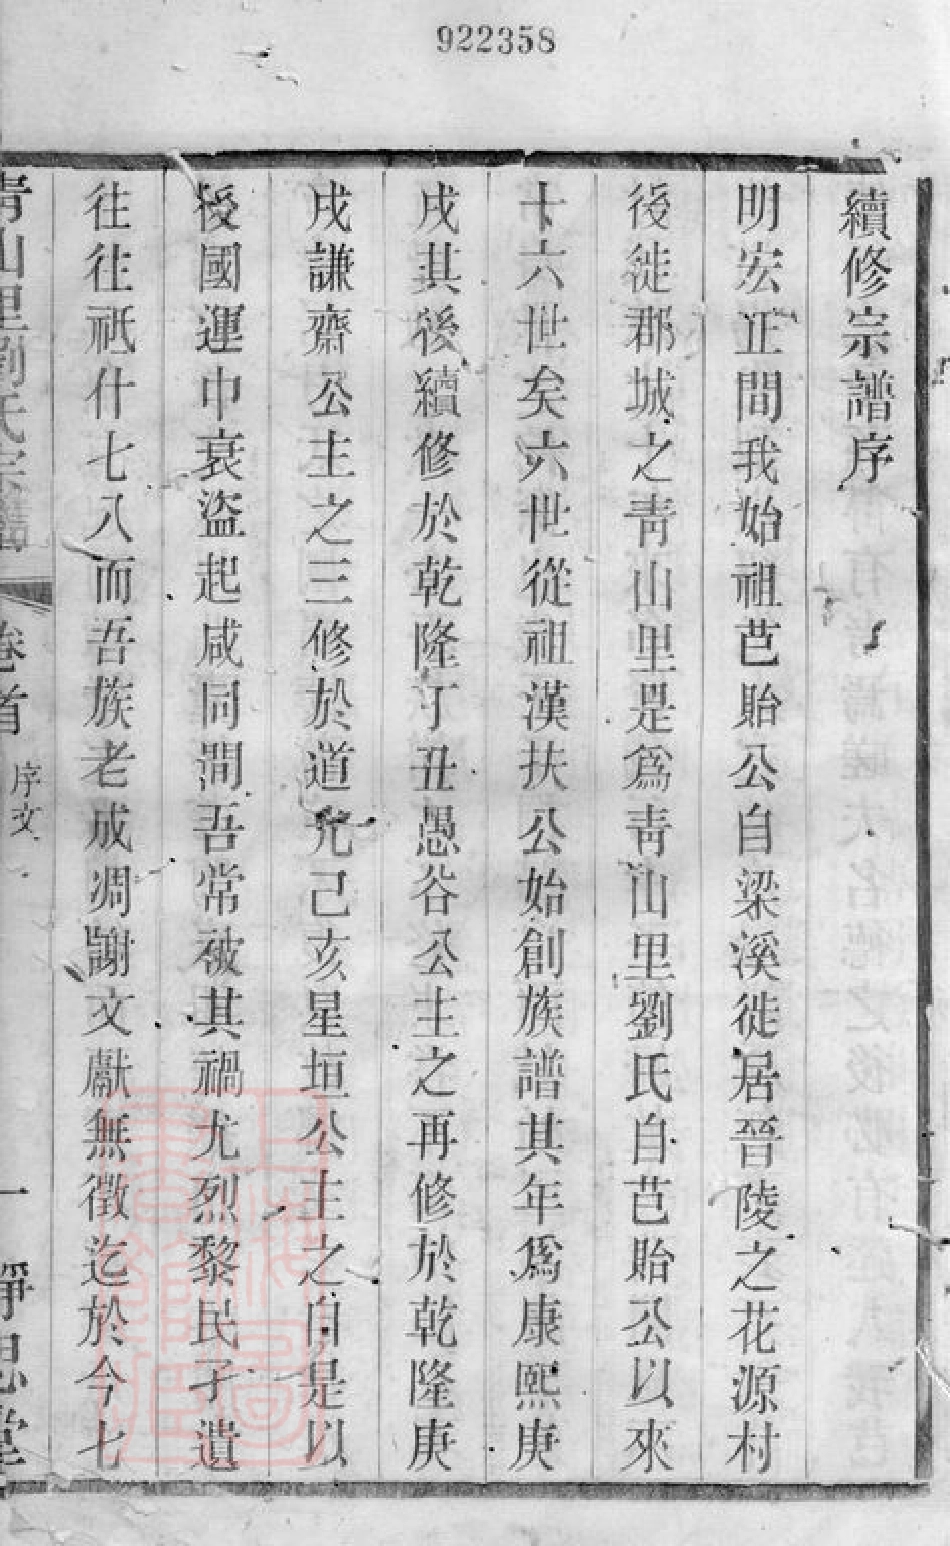 922358
續修宗譜序
明宏正間我始祖芑貽公自梁溪徙居晉陵之花源村
後徙郡城之青山里是爲青山里劉氏自芑貽公以來
十六世矣六世從祖漢扶公始創族譜其年爲康熙庚
戌其後續修於乾隆丁丑愚谷公主之再修於乾隆庚
戌謙齋公主之三修於道光己亥星垣公主之自是以
後國運中衰盜起咸同間吾常被其禍尤烈黎民孑遺
往往祇什七八而吾族老成凋謝文獻無徵迄於今七
青山里劉氏宗譜 卷首 序文 一 靜思堂